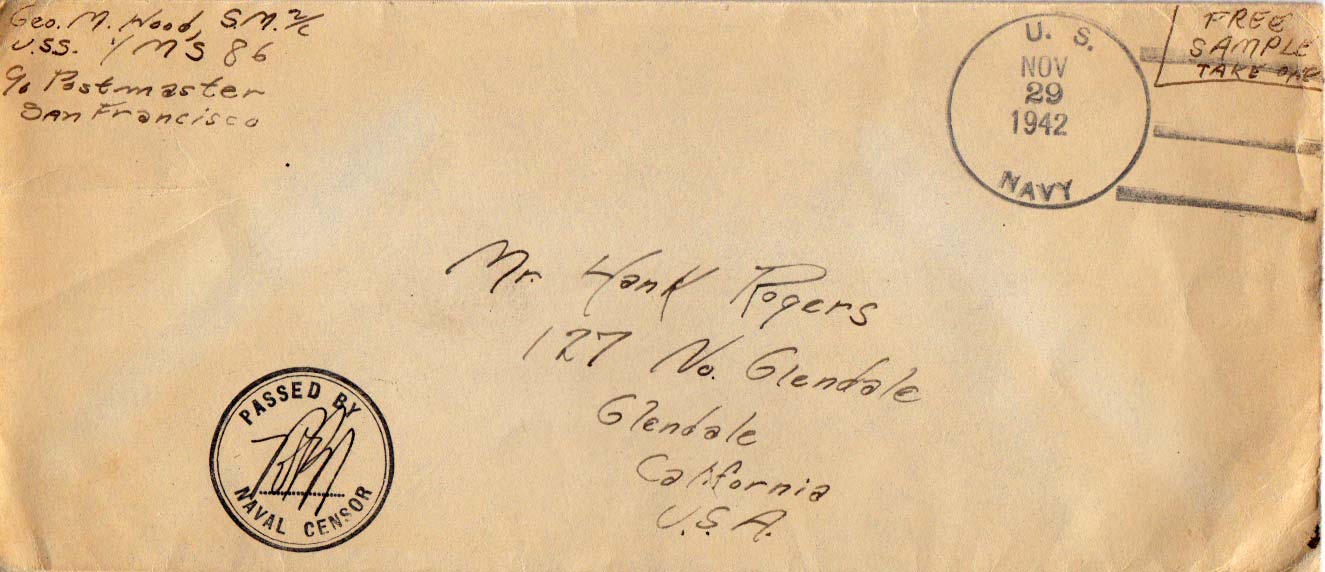 Geo. M. Wood, S.M. 2/c
U.S.S. YMS 86
c/o Postmaster
San Francisco
U. S.
NOV
29
1942
NAVY
FREE
SAMPLE
TAKE ONE
Mr. Hank Rogers
127 No. Glendale
Glendale
California
U.S.A.
PASSED BY
NAVAL CENSOR